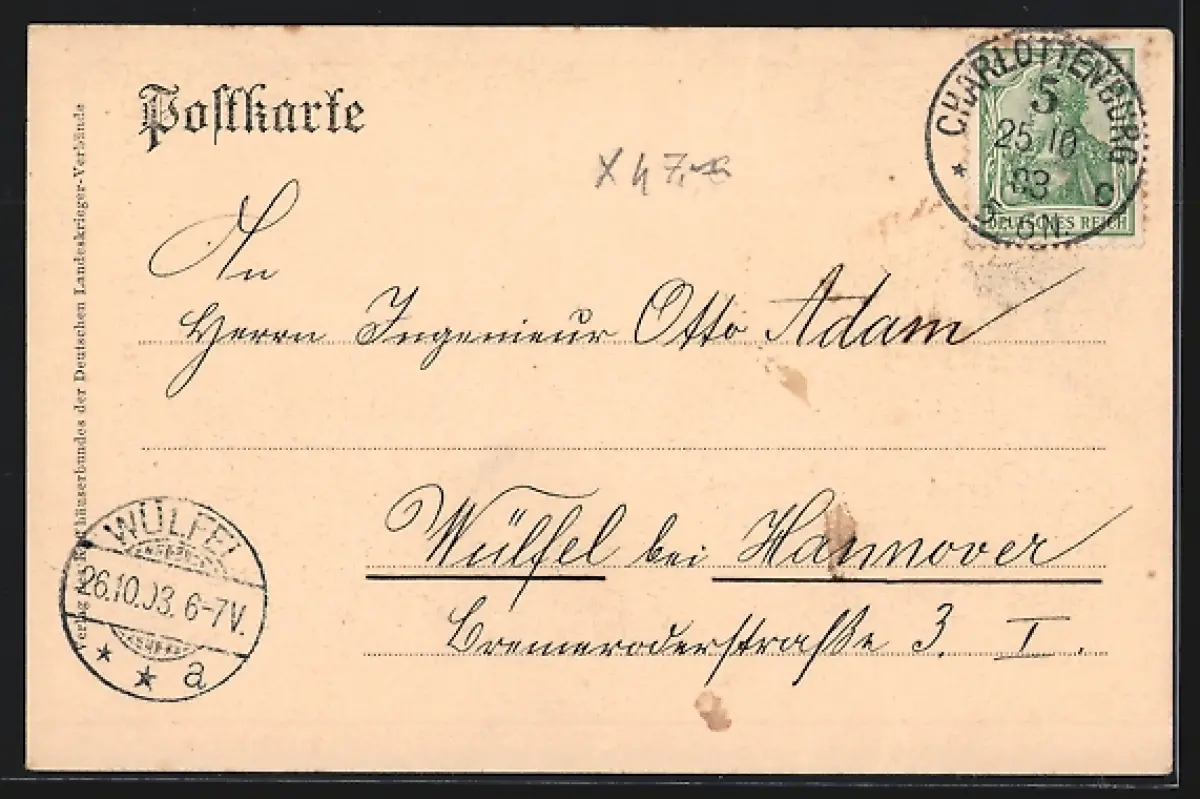 Postkarte
CHARLOTTENBURG
5
25 10
03
5-6 N. c
DEUTSCHES REICH
An
Herrn Ingenieur Otto Adam
Wülfel bei Hannover
Bremeroderstraße 3. I.
WÜLFEL
26.10.03. 6-7V.
a
Verlag des Kyffhäuserbundes der Deutschen Landeskrieger-Verbände